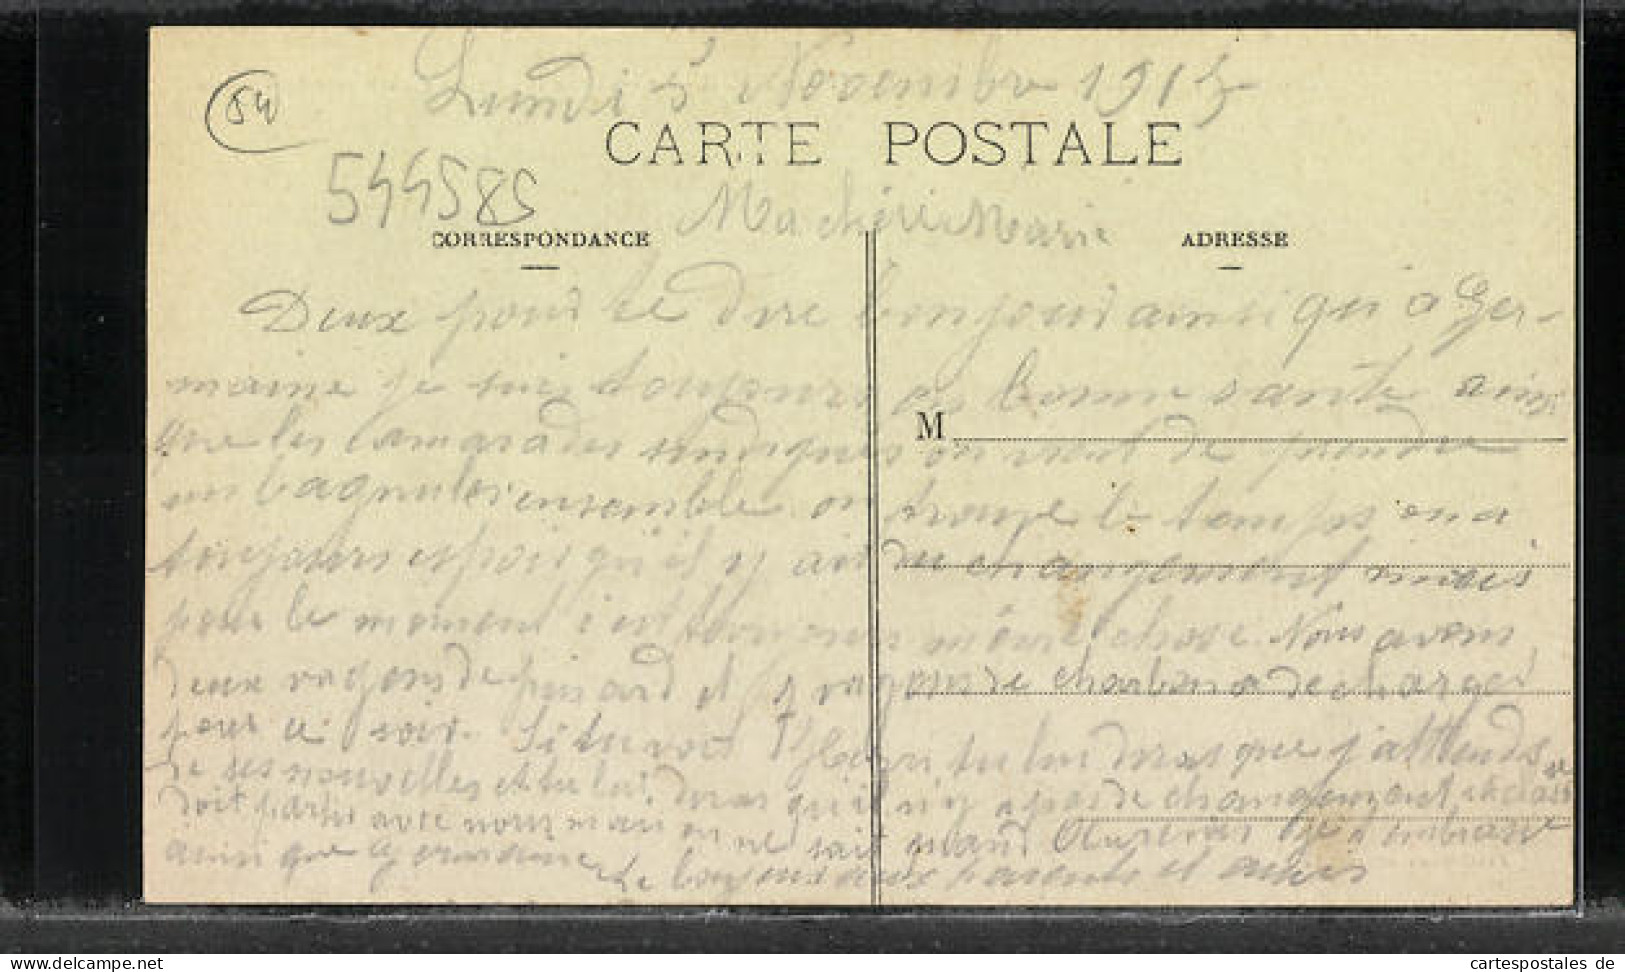 Lundi 5 Novembre 191
54
CARTE POSTALE
544585
Ma chérie Marie
CORRESPONDANCE
ADRESSE
Deux pour te dire bonjour ainsi qui a Ger-
maine je suis toujours en bonne santé ainsi
M
que les camarades on vient de prendre
un ensemble on trouve le temps on a
toujours espoir qu'il y ait du changement mais
pour le moment c'est toujours même chose. Nous avons
deux vagons de pinard et 3 vagons de charbon a decharger
pour ce soir. Si tu voit tu lui diras que j'attends
de ses nouvelles et tu lui diras qu'il n'y a pas de changement
doit partir avec nous mais on ne sait quand Au revoir je t'embrasse
ainsi que Germaine le bonjour aux parents et amis
cartespostales de